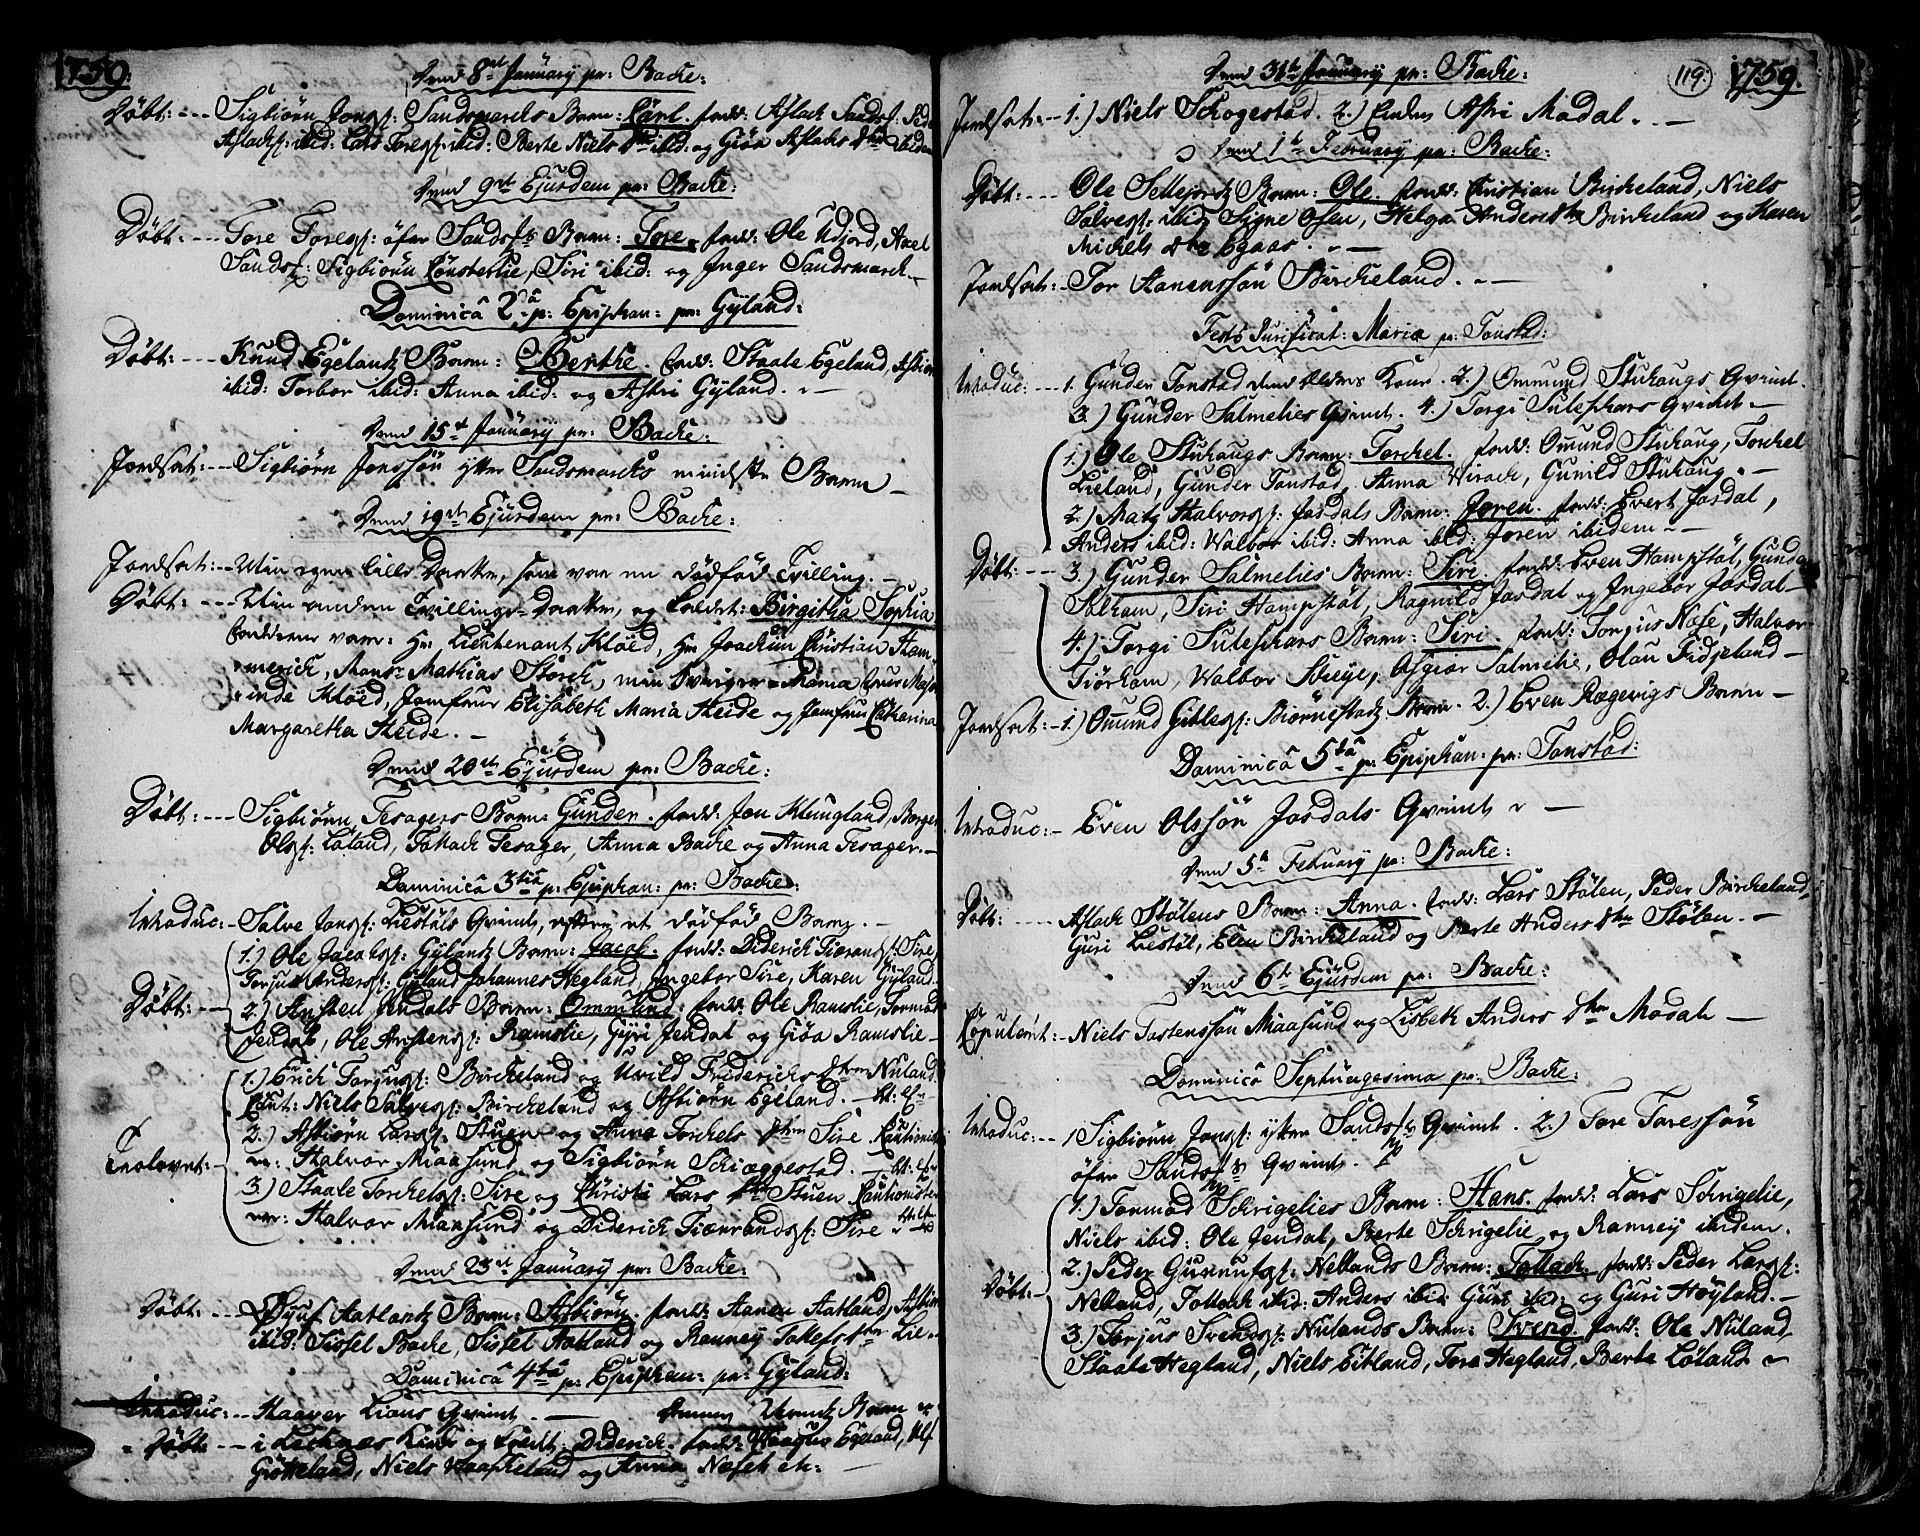 1759.
Dend 8de Januarij pr: Backe:
Døbt: --- Sigbiørn Jonss: Sandsmarcks Barn: Carl. fadd: Aslack Sandsf:
Aslacks: ibid: Lars Toress: ibid: Berte Niels dtr ibid: og Giøa Aslacks dtr ibidem
Dend 9de Ejusdem pr: Backe:
Døbt: --- Tore Toress: øfre Sands Barn: Tore. fadd: Ole Udjord, Axel
Sands: Sigbiørn Lonsterlie, Siri ibid: og Inger Sandsmarck.
Dominica 2da p: Epiphan: pr: Gyland:
Døbt: --- Knud Egelands Barn: Berthe. fadd: Staale Egeland, Asbiørn
ibid: Torbor ibid: Anna ibid: og Astri Gyland.
Dend 15de Januarij pr: Backe:
Jordsat: -- Sigbiørn Jonssøn ytter Sandsmarcks mindste Barn
Dend 19de Ejusdem pr: Backe:
Jordsat: -- Min egen lille Daatter, som var en dødfød Tvilling.
Døbt: --- Min anden Tvillings-Daatter, og kaldet: Birgitha Sophia
Fadderne vare: Hr Lieutenant Kløed, Hr Joachim Christian Ham-
merich, Mons: Mathias Storck, min Sviger-Mama
Kløed, Jomfrue Elisabeth Maria Heide og Jomfru Catharina
Margaretha Heide.
Dend 20de Ejusdem pr: Backe:
Døbt: --- Sigbiørn Tesagers Barn: Gunder. fadd: Jon Klungland, Borger
Olss: Løland, Tollack Tesager, Anna Backe og Anna Tesager.
Dominica 3tia p: Epiphan: pr: Backe:
Introduc: - Salve Jonss: Liestøls Qvinde, efter et dødfød Barn.
1.) Ole Jacobs: Gylands Barn: Jacob. fadd: Diderick Tiørands: Sire
Torjus Anderss: Gyland Johannes Hegland, Ingebor Sire, Karen Gyland.
Døbt: -- 2.) Aristen Jendals Barn: Ommund: fadd: Ole Ramslie, Tormod
Jendal, Ole Aristens: Ramslie, Gyri Jendal og Giøa Ramslie
1.) Erick Torjuss: Birckeland og Uvild Friderichs dtr Nuland.
Caut: Niels Salvess: Birckeland og Asbiørn Egeland.
2.) Asbiørn Larss: Stuen og Anna Torckels dtr Sire
Trolovet: - Halvor Miaasund og Sigbiørn Schiæggestad.
3.) Staale Torckels: Sire og Christi Lars dtr Stuen Cautionister
var: Halvor Miaasund og Diderick Tiørrands: Sire
Dend 23de Januarij pr: Backe:
Døbt: --- Aatlands Barn: Asbiørn. fadd: Aanen Aatland, Asbiørn
ibid: Sissel Backe, Sissel Aatland og Ranney Tollefs dtr Lie
Dominica 4ta p: Epiphan: pr: Gyland:
Introduc: -- Haaver Lians Qvinde. Barn
Døbt: -- i Lecknes Kircke og kaldt: Diderick. fadd: Egeland,
Gøtteland, Niels Haaskeland og Anna Neset etc:
119.
1759.
Dend 31te Januarij pr: Backe:
Jordsat: -- 1.) Niels Schogestad. 2.) Enken Astri Modal.
Dend 1te Februarij pr: Backe:
Døbt: --- Ole Sellejords Barn: Ole. fadd: Christian Birckeland, Niels
Salvess: ibid, Signe Osen, Helga Anders dtr Birckeland og Karen
Michels dtr Egaas.
Jordsat: -- Tor Aanenssøn Birckeland.
Festo Purificat: Mariæ pr: Tonstad:
Introduc: --- 1. Gunder Tonstad dend Eldres Kone. 2.) Ommund Stuhaugs Qvinde.
3.) Gunder Salmelies Qvinde. 4.) Torgi Sulephars Qvinde
1.) Ole Stuhaugs Barn: Torckel. fadd: Omund Stuhaug, Torckel
Lieland, Gunder Tonstad, Anna Wirach, Gunild Stuhaug.
2.) Matz Halvorss: Josdals Barn: Joren. fadd: Evert Josdal,
Anders ibid: Walbor ibid: Anna ibid: Joren ibidem
Døbt: --- 3.) Gunder Salmelies Barn: Siri. fadd: Even Hompstøl, Gunder
Solham, Siri Hompstøl, Ragnild Josdal og Ingebor Josdal
4.) Torgi Sulephars Barn: Siri. fadd: Torjus Nese, Halvor
Tiørham, Walbor Stieye, Asgiør Salmelie, Olau Fidjeland
Jordsat: - 1.) Omund Gitless: Biørnestads Barn. 2.) Even Rægevigs Barn
Dominica 5ta p: Epiphan: pr: Tonstad:
Introduc: - Even Olssøn Josdals Qvinde
Dend 5te Februarij pr: Backe:
Døbt: --- Aslack Stølens Barn: Anna. fadd: Lars Stølen, Peder Birckeland,
Guri Liestøl, Elen Birckeland og Berte Anders dtr Stølen.
Dend 6te Ejusdem pr: Backe:
Copulerit: - Niels Tostenssøn Miaasund og Lisbeth Anders dtr Modal
Dominica Septuagesima pr: Backe:
Introduc: -- 1 Sigbiørn Jonss: ytter Sands Qvinde. 2.) Tore Toressøn
øfre Sands Qvinde.
1.) Tormod Schrigelies Barn: Hans. fadd: Lars Schrigelie,
Niels ibid: Ole Jendal, Berte Schrigelie og Ranney ibidem
2.) Peder Gunnufs: Netlands Barn: Tollack. fadd: Peder Larss:
Døbt: - Netland, Tollack ibid: Anders ibid Guri ibid: og Guri Høyland.
3.) Torjus Svends: Nulands Barn: Svend. fadd: Ole Nuland
Staale Hegland, Niels Eitland, Tore Hegland, Berte Løland